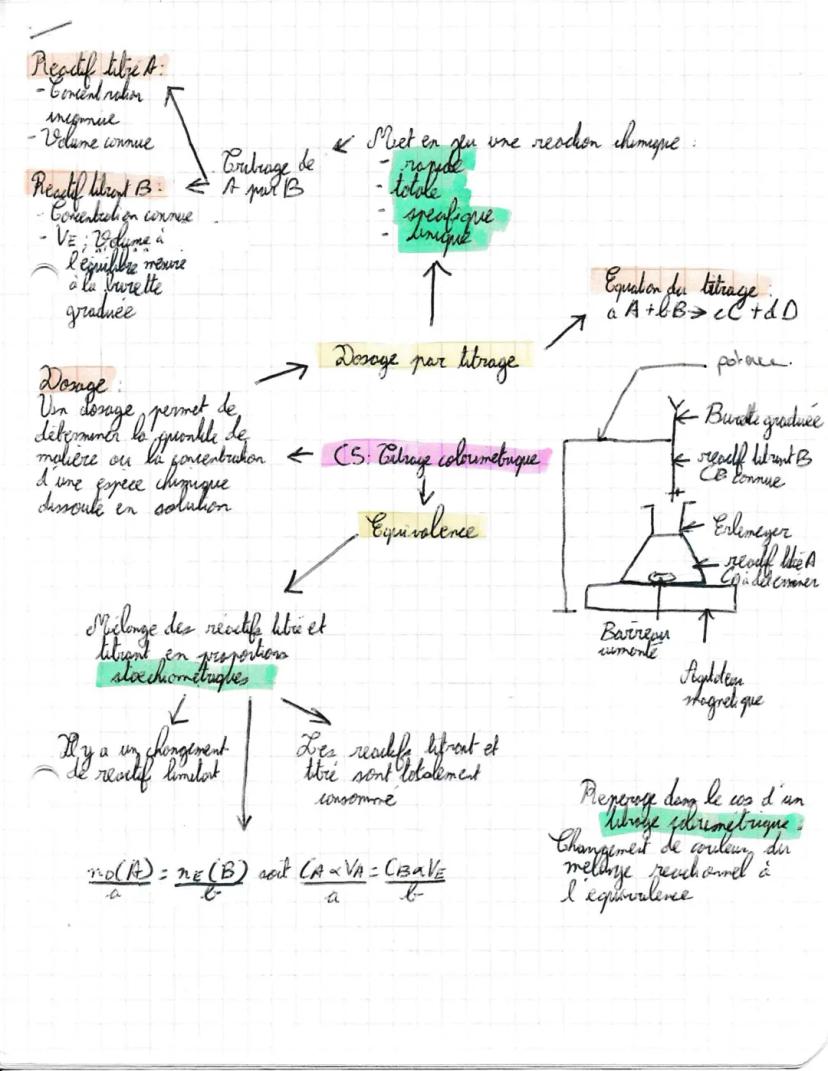 Reactif titré A:
- Concentration
inconnue
- Volume connue
Reactif titrant B:
- Concentration connue
- VE; Volume à
l'équilibre mesuré
à la burette
graduée
Titrage de
A par B
Met en jeu une reaction chimique :
- rapide
- totale
- specifique
- unique
Equation du titrage :
a A + b B → c C + d D
Dosage par titrage
Dosage :
Un dosage permet de
déterminer la quantité de
matière ou la concentration
d'une espèce chimique
dissoute en solution
C5: Titrage colorimetrique
Equivalence
potence
Burette graduée
reactif titrant B
CB connue
Erlenmeyer
reactif titré A
à déterminer
Barreau
aimanté
Agitateur
magnetique
Mélange des réactifs titré et
titrant en proportions
stoechiométriques
Il y a un changement
de reactif limitant
Les reactifs titrant et
titré sont totalement
consommé
n0(A)/a = nE(B)/b soit CA x VA/a = CB x VE/b
Reperage dans le cas d'un
titrage colorimétrique :
Changement de couleur du
mélange reactionnel à
l'équivalence